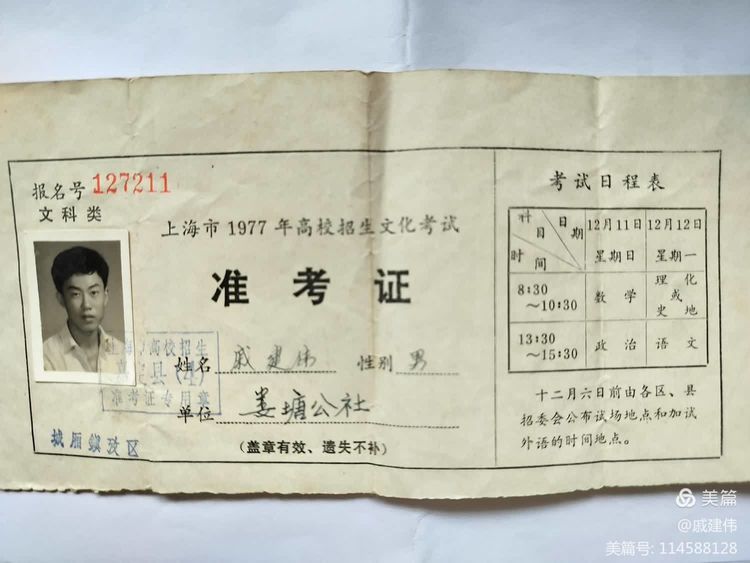 报名号 127211
文科类
上海市1977年高校招生文化考试
准考证
上海市高校招生
嘉定县(4)
准考证专用章
姓名 戚建伟 性别 男
单位 娄塘公社
城厢镇考区
(盖章有效、遗失不补)
考试日程表
科目 日期 时间 12月11日 星期日 12月12日 星期一
8:30～10:30 数学 理化或史地
13:30～15:30 政治 语文
十二月六日前由各区、县
招委会公布试场地点和加试
外语的时间地点。
美篇
@戚建伟
美篇号: 114588128